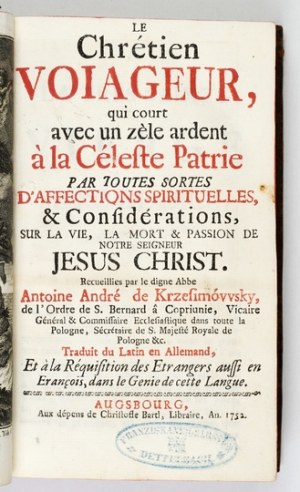 LE
Chrétien
VOIAGEUR,
qui court
avec un zèle ardent
à la Céleſte Patrie
PAR TOUTES SORTES
D'AFFECTIONS SPIRITUELLES,
& Conſidérations,
SUR LA VIE, LA MORT & PASSION DE
NOTRE SEIGNEUR
JESUS CHRIST.
Recueillies par le digne Abbe
Antoine André de Krzeſimóvvsky,
de l'Ordre de S. Bernard â Copriunie, Vicaire
Général & Commiſſaire Eccleſiaſtique dans toute la
Pologne, Sécrétaire de S. Majeſté Royale de
Pologne &c.
Traduit du Latin en Allemand,
Et à la Réquiſition des Etrangers auſſi en
François, dans le Genie de cette Langue.
AUGSBOURG,
Aux dépens de Chriſtoffle Bartl, Libraire, An. 1752.
DETTELBACH